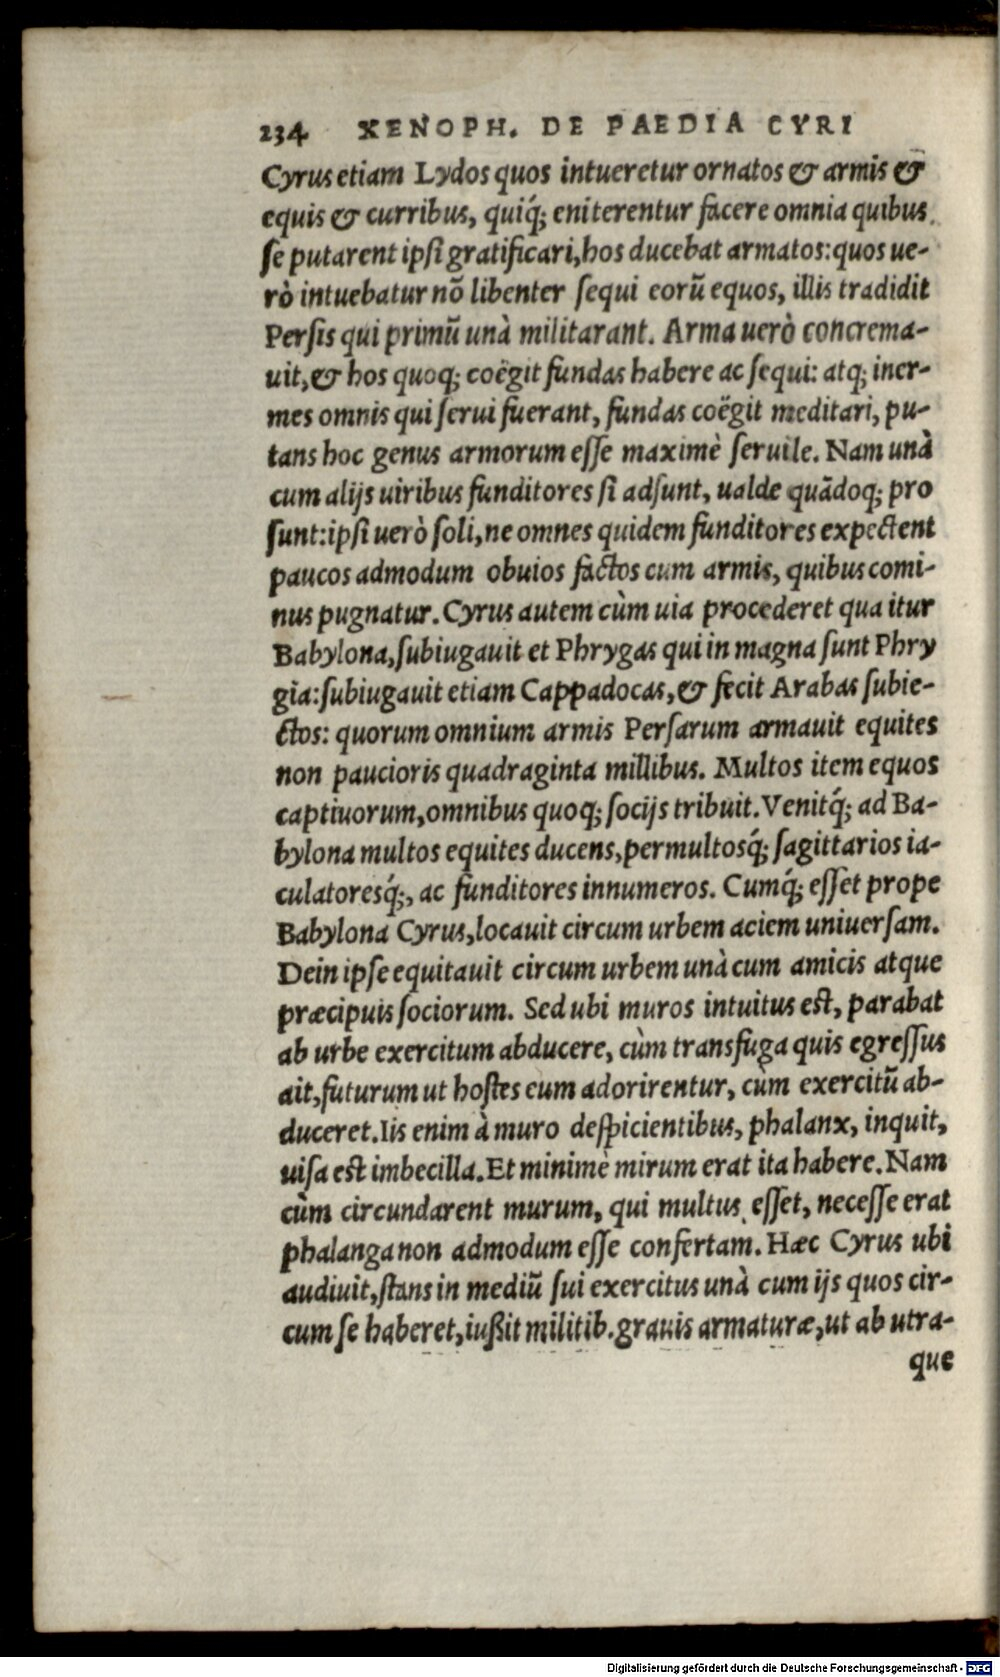 234 XENOPH. DE PAEDIA CYRI
Cyrus etiam Lydos quos intueretur ornatos & armis &
equis & curribus, quiq́; eniterentur facere omnia quibus
se putarent ipsi gratificari, hos ducebat armatos: quos ue-
rò intuebatur nō libenter sequi eorū equos, illis tradidit
Persis qui primū unà militarant. Arma uerò concrema-
uit, & hos quoq; coëgit fundas habere ac sequi: atq; iner-
mes omnis qui serui fuerant, fundas coëgit meditari, pu-
tans hoc genus armorum esse maximè seruile. Nam unà
cum alijs uiribus funditores si adsunt, ualde quādoq; pro
sunt: ipsi uerò soli, ne omnes quidem funditores expectent
paucos admodum obuios factos cum armis, quibus comi-
nus pugnatur. Cyrus autem cùm uia procederet qua itur
Babylona, subiugauit et Phrygas qui in magna sunt Phry
gia: subiugauit etiam Cappadocas, & fecit Arabas subie-
ctos: quorum omnium armis Persarum armauit equites
non paucioris quadraginta millibus. Multos item equos
captiuorum, omnibus quoq; socijs tribuit. Venitq́; ad Ba-
bylona multos equites ducens, permultosq́; sagittarios ia-
culatoresq́;, ac funditores innumeros. Cumq́; esset prope
Babylona Cyrus, locauit circum urbem aciem uniuersam.
Dein ipse equitauit circum urbem unà cum amicis atque
præcipuis sociorum. Sed ubi muros intuitus est, parabat
ab urbe exercitum abducere, cùm transfuga quis egressus
ait, futurum ut hostes eum adorirentur, cùm exercitū ab-
duceret. Iis enim à muro despicientibus, phalanx, inquit,
uisa est imbecilla. Et minimè mirum erat ita habere. Nam
cùm circundarent murum, qui multus esset, necesse erat
phalanga non admodum esse confertam. Hæc Cyrus ubi
audiuit, stans in mediū sui exercitus unà cum ijs quos cir-
cum se haberet, iußit militib. grauis armaturæ, ut ab utra-
que
Digitalisierung gefördert durch die Deutsche Forschungsgemeinschaft - DFG